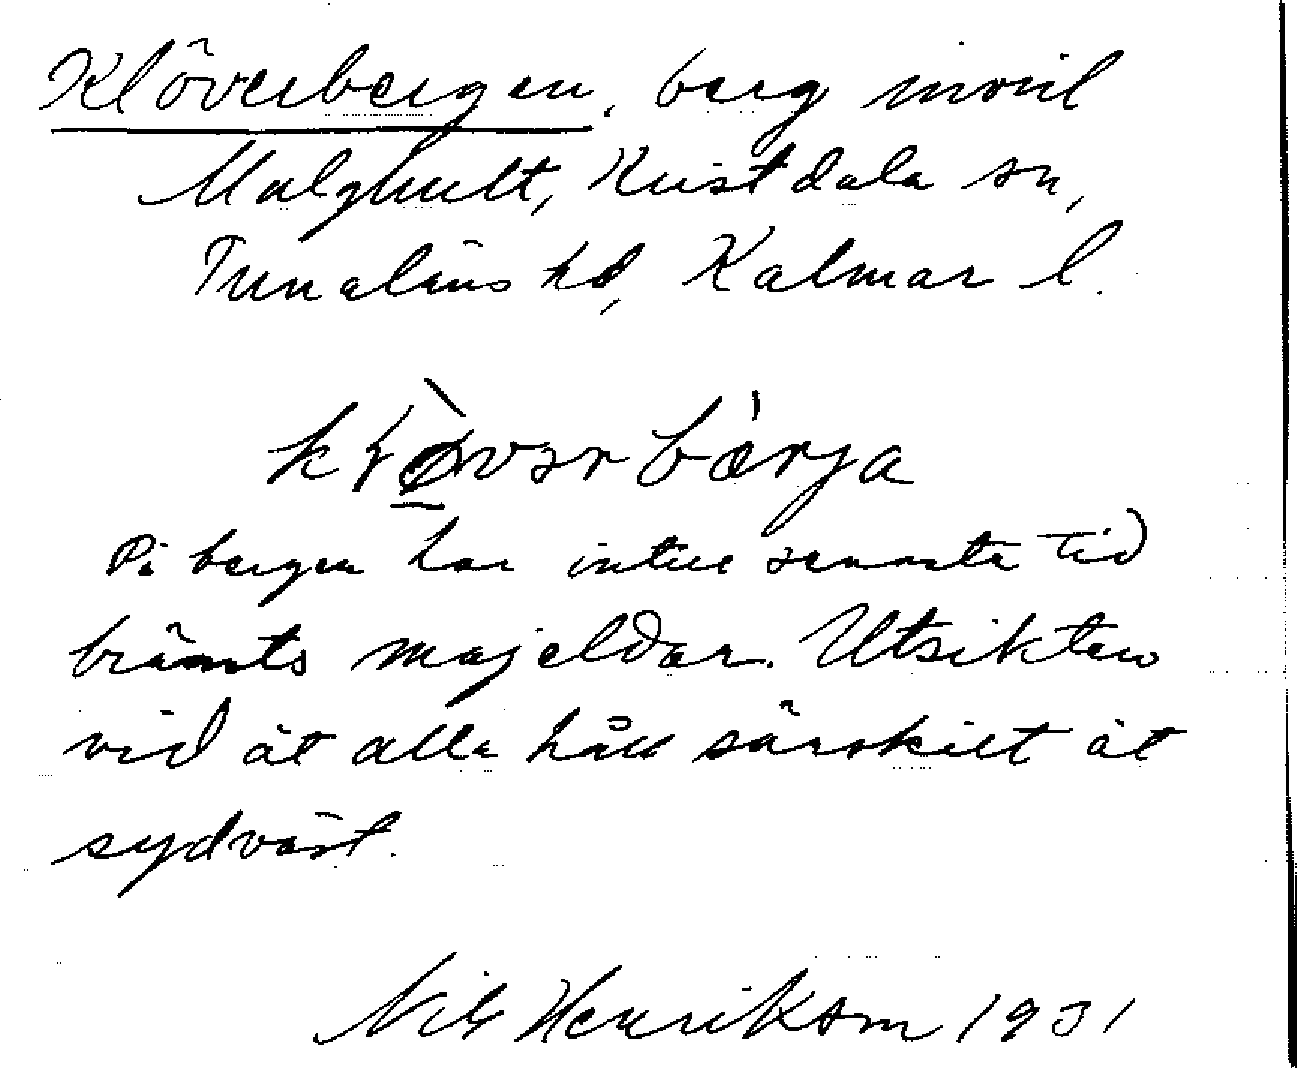 Klöverbergen, berg invid
Malghult, Kristdala sn,
Tunaläns hd, Kalmar l.
På bergen har intill senaste tid
bränts majeldar. Utsikten
vid åt alla håll särskilt åt
sydväst.
Nils Henrikson 1931